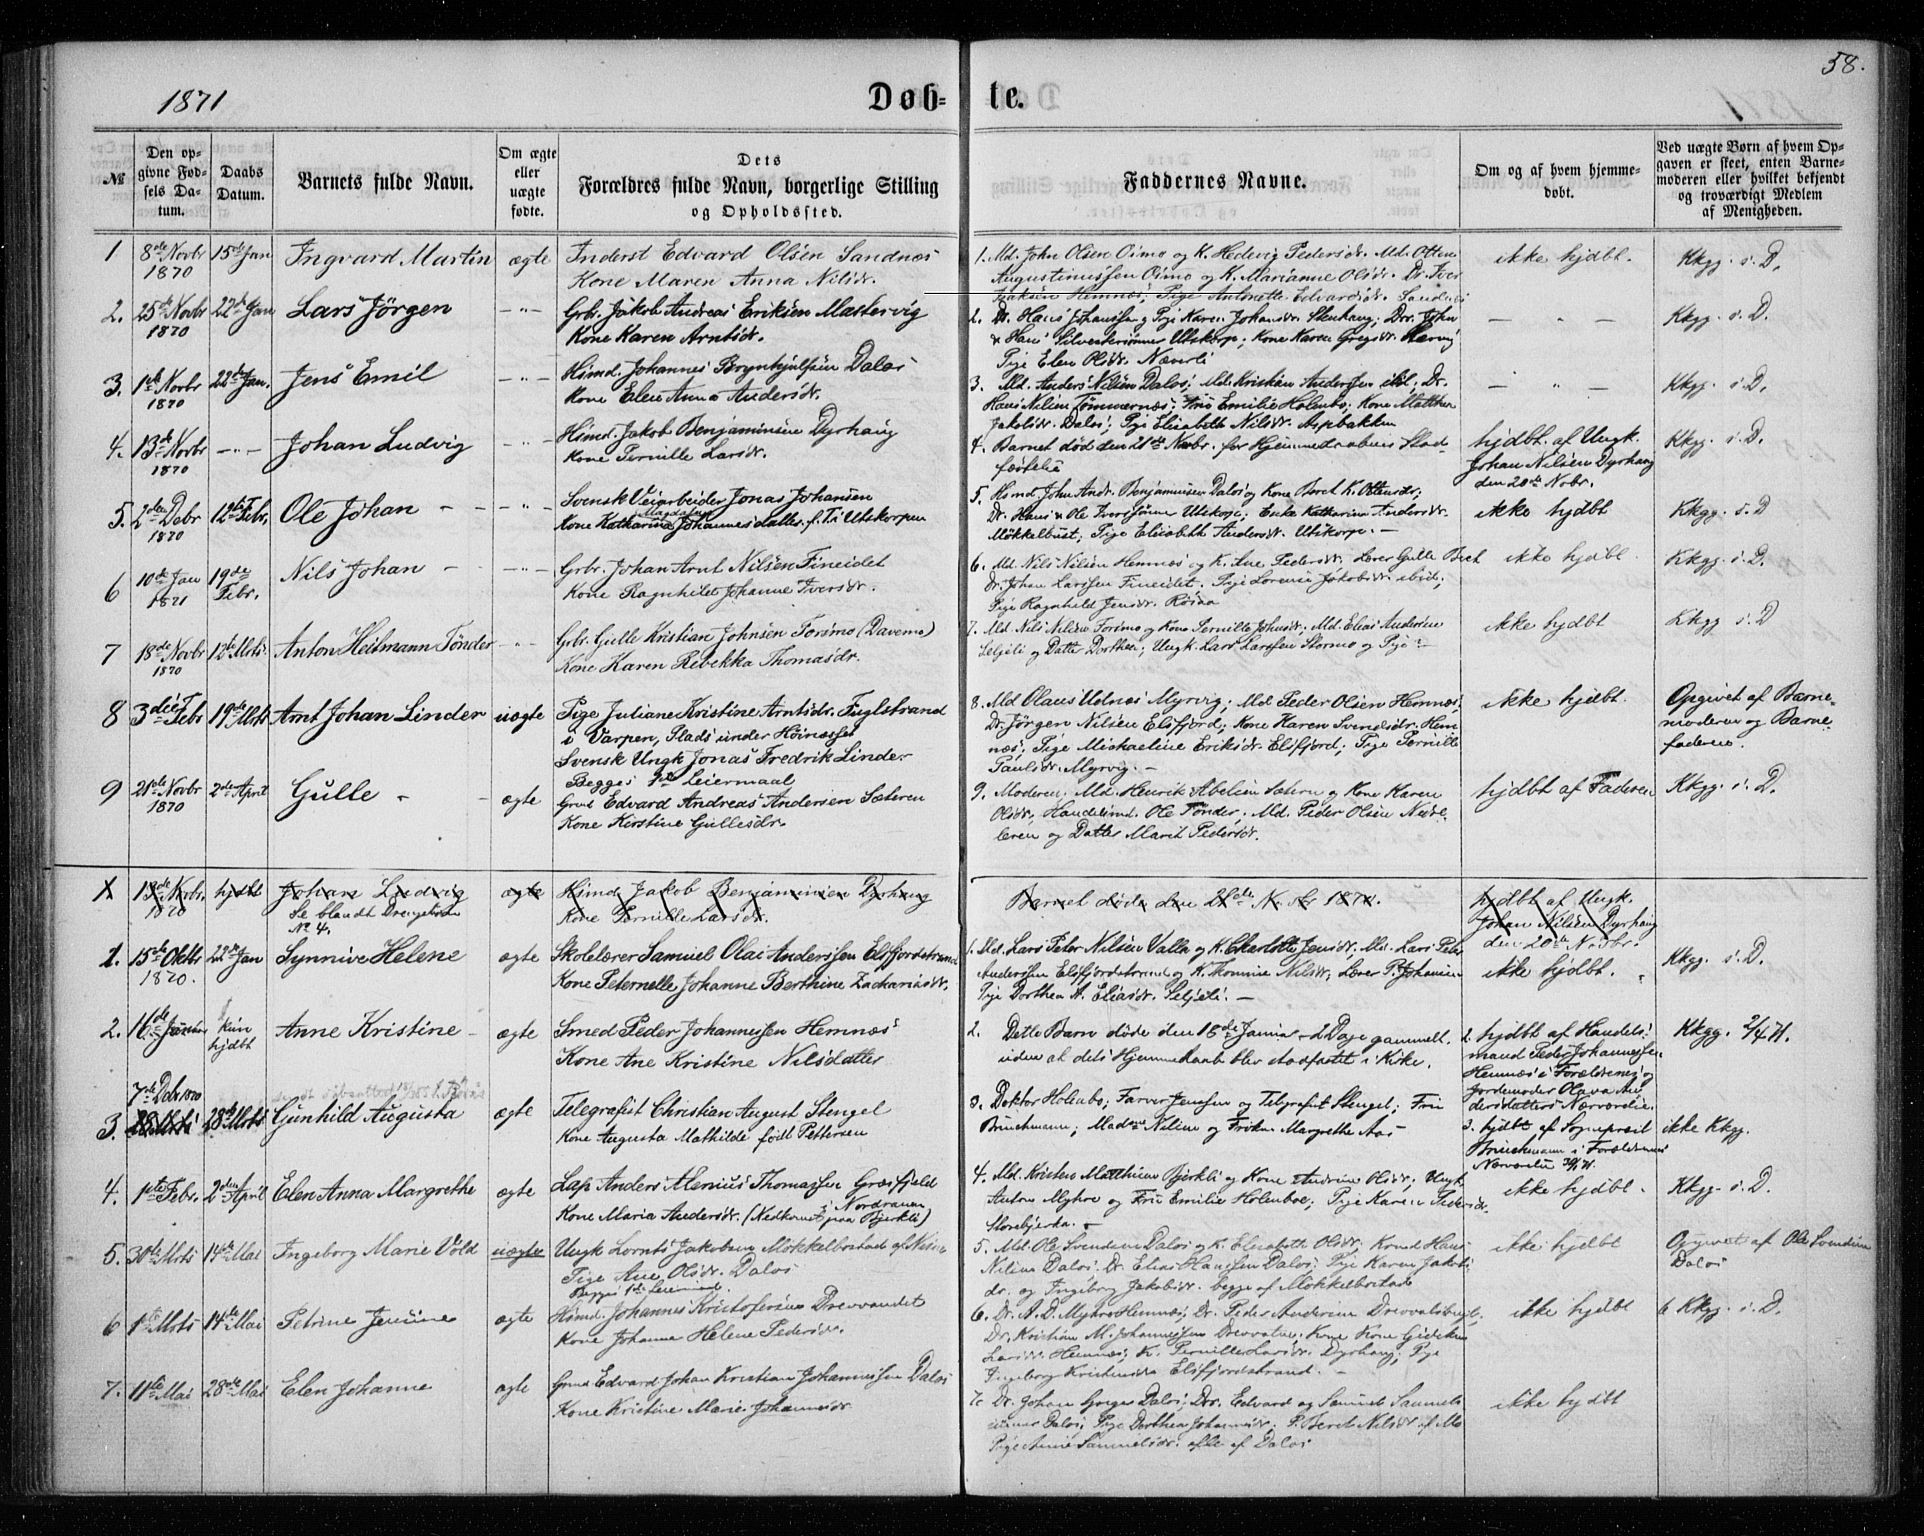 1871
Døb-
te.
58.
№
Den op-
givne Fød-
sels Da-
tum.
Daabs
Datum.
Barnets fulde Navn.
Om ægte
eller
uægte
fødte.
Dets
Forældres fulde Navn, borgerlige Stilling
og Opholdssted.
Faddernes Navne.
Om og af hvem hjemme-
døbt.
Ved uægte Børn af hvem Op-
gaven er skeet, enten Barne-
moderen eller hvilket bekjendt
og troværdigt Medlem
af Menigheden.
1 8de Novbr 15de Jan Ingvard Martin ægte Inderst Edvard Olsen Sandnæs
1870 Kone Maren Anna Nilsdr.
1. Md. John Olsen Oimo og K. Hedevig Pedersdr. Md. Otten
Augustinussen Oimo og K. Marianne Olsdr. Dr. Iver
Isaksen Hemnæs; Pige Antonette Edvardsdr. Sandnæs
ikke hjdbt. Kkgg. s. D.
2. 25de Novbr 22de Jan Lars Jörgen -"- Grb. Jakob Andreas Eriksen Mastervig
1870 Kone Karen Arntsdr.
2. Dr. Hans Johanssen og Pige Karen Johansdr. Stenhaug; Drr. John
& Hans Silvestersønner Utskorp; Kone Karen Gregsdr.
Pige Elen Olsdr. Næverli
- " - Kkgg. s. D.
3. 1de Novbr 22de Jan. Jens Emil -"- Hsmd. Johannes Brynhjulfsen Dalos
1870 Kone Elen Anna Andersdr.
3. Md. Anders Nilsen Dalos; Md. Kristian Anderssen ibd, Dr.
Hans Nilsen Tömmernæs; Frue Emilie Holmbo; Kone Matthea
Jakobsdr. Dalos; Pige Elisabeth Nilsdr. Aspbakken
- " - Kkgg. s. D.
4. 13de Novbr -"- Johan Ludvig -"- Hsmd. Jakob Benjaminsen Dyrhaug
1870 Kone Pernille Larsdr.
4. Barnet död den 21de Novbr. før Hjemmedaabens Stad-
fæstelse
hjdbt. af Ungk.
Johan Nilsen Dyrhaug
den 20de Nobr.
Kkgg. s. D.
5. 2den Debr 12te Febr. Ole Johan -"- Svensk Veiarbeider Jonas Johansen
1870 Kone Katharina Magdalena Johannesdatter. f. T. i Utskorpen
5. Hsmd. John Andr. Benjaminsen Dalos og Kone Beret K. Ottesdr;
Dr. Hans & Ole Iverssønner Utskorp; Enke Katharina Andersdr.
Mökkelbust; Pige Elisabeth Andersdr. Utskorp. -
ikke hjdbt Kkgg. s. D
6 10de Jan 19de Febr. Nils Johan -"- Grbr. Johan Arnt Nilsen Fineidet
1871 Kone Ragnhild Johanne Iversdr.
6. Md. Nils Nilsen Hemnæs og K. Ane Pedersdr. Lærer Gulle Bech
Dr. Johan Larssen Fineidet. Pige Lorense Jakobsdr. ibid;
Pige Ragnhild Jensdr. Rösaa
ikke hjdbt. Kkgg. s. D.
7 18de Novbr 12te Mrts Anton Heltmann Tönder -"- Grbr. Gulle Kristian Johnsen Forsmo (Davemo)
1870 Kone Karen Rebekka Thomasdr.
7. Md. Nils Nilsen Forsmo og Kone Pernille Johnsdr; Md. Elias Andersen
Seljeli og Datter Dorthea; Ungk. Lars Larssen Stormo og Pige -
ikke hjdbt Kkgg s. D
8 3die Febr 19de Mrts Arnt Johan Linder uægte Pige Juliane Kristine Arntsdr. Fuglstrand
i Varpen, Plads under Höinæsset
Svensk Ungk Jonas Fredrik Linder
Begges 1ste Leiermaal
8. Md Olaus Udnæs Myrvig; Md. Peder Olsen Hemnæs;
Dr. Jörgen Nilsen Elsfjord; Kone Karen Svendsdr. Hem-
næs; Pige Michaeline Eriksdr. Elsfjord; Pige Pernille
Paulsdr. Myrvig. -
ikke hjdbt. Opgivet af Barne-
moderen og Barne-
faderen.
9 21de Novbr 2de April Gulle - ægte Grmd Edvard Andreas Andersen Sæteren
1870 Kone Kirstine Gullesdr.
9. Moderen. Md. Henrik Abelsen Sætern og Kone Karen
Olsdr; Handelsmd. Ole Tönder; Md. Peder Olsen Nedre-
leren og Datter Marit Pedersdr.
hjdbt af Faderen Kkgg. s. D.
1 13de Novbr. hjdbt Johan Ludvig ægte Hsmd Jakob Benjaminsen Dyrhaug
1870 Se blandt Drengebørn Kone Pernille Larsdr.
№ 4.
Barnet døde den 21de Novbr 1870.
hjdbt af Ungk.
Johan Nilsen Dyrhaug
den 20de Novbr.
1. 15de Oktbr 22de Jan Synnive Helene ægte Skolelærer Samuel Olai Anderssen Elsfjordstrand
1870. Kone Peternelle Johanne Berthine Zachariasdr.
1. Md. Lars Peter Nilsen Valla og K. Charlotte Jensdr. Md. Lars Peter
Anderssen Elsfjordstrand og K. Thomine Nilsdr; Lærer P. Johansen
Pige Dorthea A. Eliasdr. Seljeli. -
ikke hjdbt. Kkgg. s. D.
2. 16de Januar kun Anne Kristine - ægte Smed Peder Johannessen Hemnæs
hjdbt Kone Ane Kristine Nilsdatter
2. Dette Barn døde den 18de Januar - 2 Dage gammelt,
uden at dets Hjemmedaab blev stadfæstet i Kirke.
2. hjdbt af Handels-
mand Peder Johannessen
Hemnæs i Forældrenes og
Jordemoder Olava An-
dersdatters Nærværelse.
Kkgg. 2/4 71.
7de Debr 1870
3. 28 Mrts 28de Mrts Gunhild Augusta ægte Telegrafist Christian August Stengel
Kone Augusta Mathilde född Pettersen
3. Doktor Holmbo; Farver Jenssen og Telegrafist Stengel; Fru
Brinchmann; Madme Nilsen og Frøken Margrethe Aas
3. hjdbt af Sognepræst
Brinchmann i Forældrenes
Nærværelse
ikke Kkgg.
4. 1ste Febr. 2den April Elen Anna Margrethe ægte Lap Anders Alenius Thomassen Graafjeld
i Nordranen
Kone Maria Andersdr. (Nedkomst paa Bjerkli)
4. Md. Kristen Matthisen Bjerkli og Kone Andrine Olsdr, Ungk.
Anton Myhre og Frue Emilie Holmboe; Pige Karen Pedersdr.
Storebjerka. -
ikke hjdbt. Kkgg. s. D.
5. 30te Mrts 14de Mai Ingeborg Marie Vold uægte Ungk Lornts Jakobsen Mökkelbostad af Næsne
Pige Ane Olsdr. Dalos
Begges 1ste Leiermaal.
5. Md. Ole Svendsen Dalos og K. Elisabeth Olsdr. Kmd Hans
Nilsen Dalos. Dr. Elias Hanssen Dalos; Pige Karen Jakobs-
dr. og Ingeborg Jakobsdr. begge af Mökkelbostad
ikke hjdbt Opgivet af Ole Svendsen
Dalos
6 1ste Mrts 14de Mai Petrine Jensine ægte Hsmd. Johannes Kristofersen Drevvandet
Kone Johanna Helene Pedersdr.
6. Dr. A. D. Myhre Hemnæs; Dr. Peder Andersen Drevvatsbugt,
Dr. Kristian M. Johannessen Drevvatne. Kone Gidsken
Larsdr. Hemnæs; K. Pernille Larsdr. Dyrhaug; Pige
Ingeborg Kristensdr Elsfjordstrand. -
ikke hjdbt 6 Kkgg. s. D.
7. 11te Mai 28de Mai Elen Johanne ægte Grmd Edvard Johan Kristian Johannessen Dalos
Kone Kristine Marie Johannesdr
7. Dr. Johan Greger Dalos; Drr. Edvard og Samuel Samuels-
sønner Dalos; Pige Dorthea Johannesdr; P. Beret Nilsdr af Mo
Pige Anne Samuelsdr. alle af Dalos
ikke hjdbt